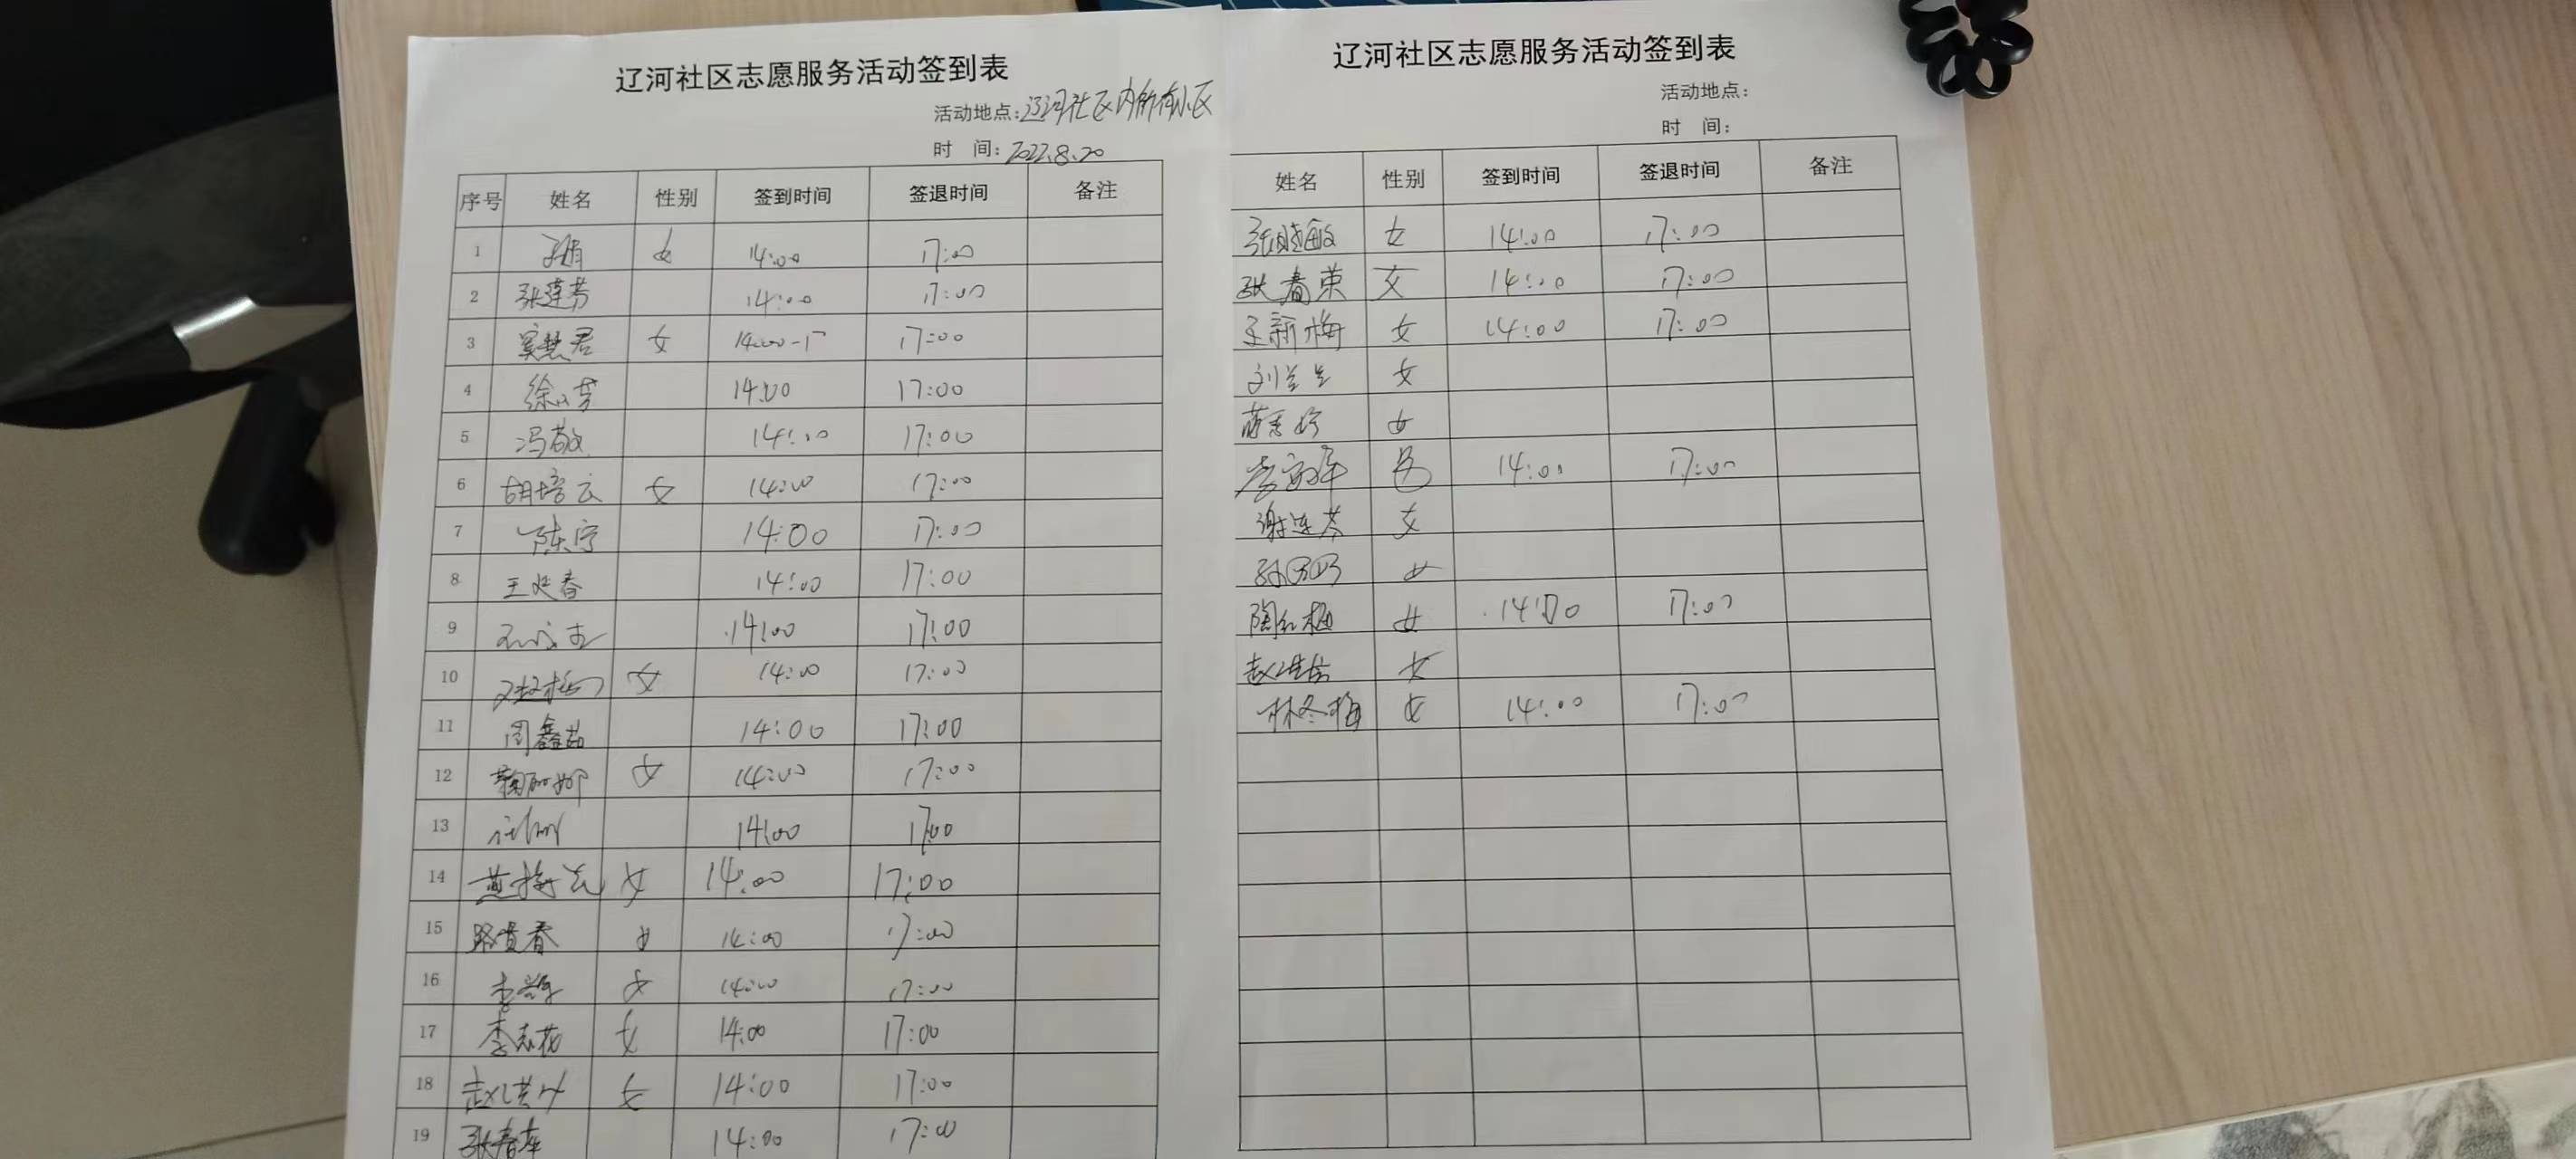 辽河社区志愿服务活动签到表
活动地点:辽河社区内所有小区
时 间:2022.8.20
序号 姓名 性别 签到时间 签退时间 备注
1 女 14:00 17:00
2 张莲芳 14:00 17:00
3 窦慧君 女 14:00-17 17:00
4 徐小芳 14:00 17:00
5 冯敬 14:00 17:00
6 胡培云 女 14:00 17:00
7 陈宁 14:00 17:00
8 王延春 14:00 17:00
9 14:00 17:00
10 女 14:00 17:00
11 周鑫茹 14:00 17:00
12 鞠丽娜 女 14:00 17:00
13 14:00 17:00
14 女 14:00 17:00
15 路贵春 女 14:00 17:00
16 女 14:00 17:00
17 李志花 女 14:00 17:00
18 女 14:00 17:00
19 14:00 17:00
辽河社区志愿服务活动签到表
活动地点:
时 间:
姓名 性别 签到时间 签退时间 备注
张晓敏 女 14:00 17:00
张春荣 女 14:00 17:00
王新梅 女 14:00 17:00
刘兰兰 女
女
男 14:00 17:00
谢连芬 女
女
陶红梅 女 14:00 17:00
女
林冬梅 女 14:00 17:00